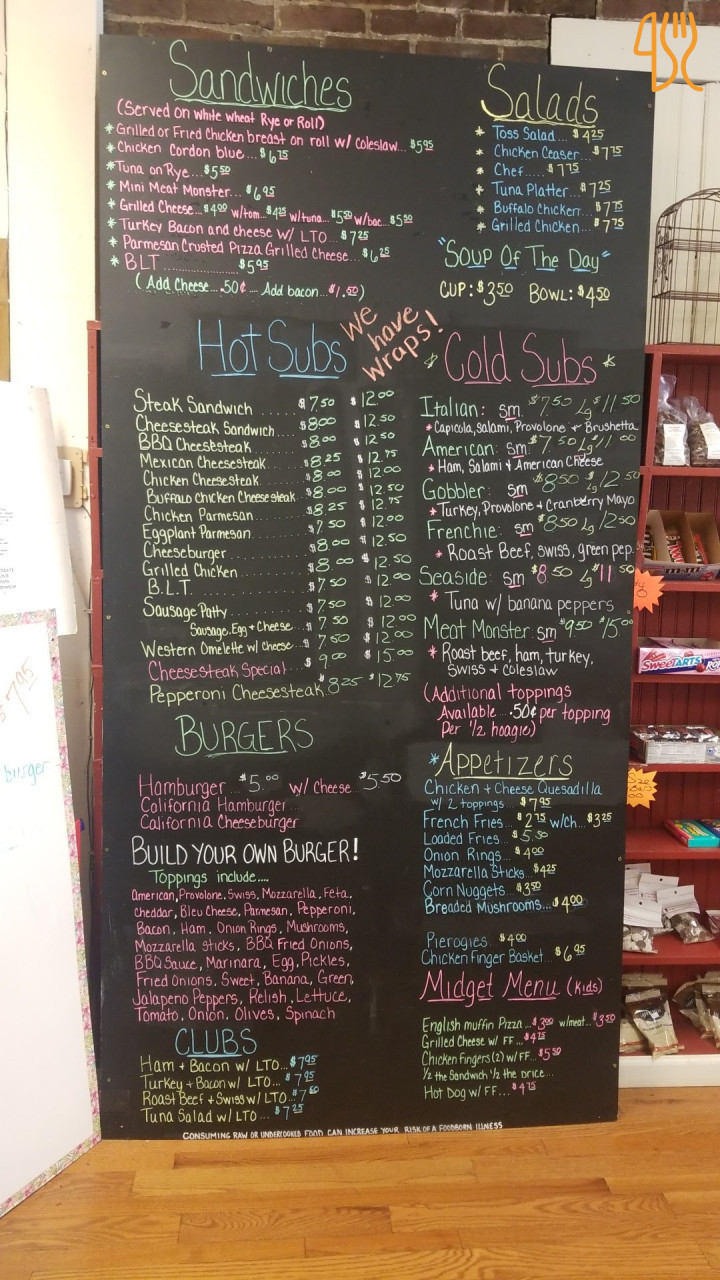 Sandwiches
(Served on white wheat Rye or Roll)
* Grilled or Fried Chicken breast on roll w/ Coleslaw... $5.95
* Chicken Cordon blue... $6.75
* Tuna on Rye... $5.50
* Mini Meat Monster... $6.95
* Grilled Cheese... $4.00 w/tom... $4.25 w/tuna... $5.50 w/bac... $5.50
* Turkey Bacon and cheese w/ LTO... $7.25
* Parmesan Crusted Pizza Grilled Cheese... $6.25
* BLT.............. $5.95
(Add Cheese... .50¢ ... Add bacon... $1.50)
Salads
* Toss Salad... $4.25
* Chicken Ceaser... $7.75
* Chef..... $7.75
* Tuna Platter... $7.25
* Buffalo Chicken... $7.75
* Grilled Chicken... $7.75
"Soup Of The Day"
CUP: $3.50 BOWL: $4.50
We have wraps!
Hot Subs
Steak Sandwich ..... $7.50 $12.00
Cheesesteak Sandwich.... $8.00 $12.50
BBQ Cheesesteak..... $8.00 $12.50
Mexican Cheesesteak..... $8.25 $12.75
Chicken Cheesesteak.... $8.00 $12.00
Buffalo Chicken Cheesesteak $8.00 $12.50
Chicken Parmesan...... $8.25 $12.75
Eggplant Parmesan..... $7.50 $12.00
Cheeseburger........ $8.00 $12.50
Grilled Chicken...... $8.00 $12.50
B.L.T.......... $7.50 $12.00
Sausage Patty....... $7.50 $12.00
Sausage, Egg + Cheese .... $7.50 $12.00
Western Omelette w/ Cheese... $7.50 $12.00
Cheesesteak Special.... $9.00 $15.00
Pepperoni Cheesesteak $8.25 $12.75
Cold Subs
Italian: sm $7.50 Lg $11.50
* Capicola, salami, Provolone + Brushetta
American: sm $7.50 Lg $11.00
* Ham, Salami + American Cheese
Gobbler: sm $8.50 Lg $12.50
* Turkey, Provolone + Cranberry Mayo
Frenchie: sm $8.50 Lg $12.50
* Roast Beef, swiss, green pep.
Seaside: sm $8.50 Lg $11.50
* Tuna w/ banana peppers
Meat Monster: sm $9.50 $15.00
* Roast beef, ham, turkey,
swiss + coleslaw
(Additional toppings
Available ... .50¢ per topping
Per 1/2 hoagie)
BURGERS
Hamburger... $5.00 w/ Cheese... $5.50
California Hamburger
California Cheeseburger
BUILD YOUR OWN BURGER!
Toppings include....
American, Provolone, Swiss, Mozzarella, Feta,
Cheddar, Bleu Cheese, Parmesan, Pepperoni,
Bacon, Ham, Onion Rings, Mushrooms,
Mozzarella sticks, BBQ Fried Onions,
BBQ Sauce, Marinara, Egg, Pickles,
Fried Onions, Sweet, Banana, Green,
Jalapeno Peppers, Relish, Lettuce,
Tomato, Onion, Olives, Spinach
CLUBS
Ham + Bacon w/ LTO... $7.95
Turkey + Bacon w/ LTO... $7.95
Roast Beef + Swiss w/ LTO...
Tuna Salad w/ LTO... $7.25
*Appetizers
Chicken + Cheese Quesadilla
w/ 2 toppings... $7.95
French Fries... $2.75 w/ch... $3.25
Loaded Fries... $5.50
Onion Rings... $4.00
Mozzarella Sticks... $4.25
Corn Nuggets... $3.50
Breaded Mushrooms... $4.00
Pierogies $4.00
Chicken Finger Basket... $6.95
Midget Menu (kids)
English muffin Pizza... $3.00 w/meat... $3.50
Grilled Cheese w/ FF... $4.75
Chicken fingers (2) w/ FF... $5.50
1/2 the Sandwich 1/2 the price...
Hot Dog w/ FF... $4.75
CONSUMING RAW OR UNDERCOOKED FOOD CAN INCREASE YOUR RISK OF A FOODBORN ILLNESS
$7.95
burger
SWEETARTS